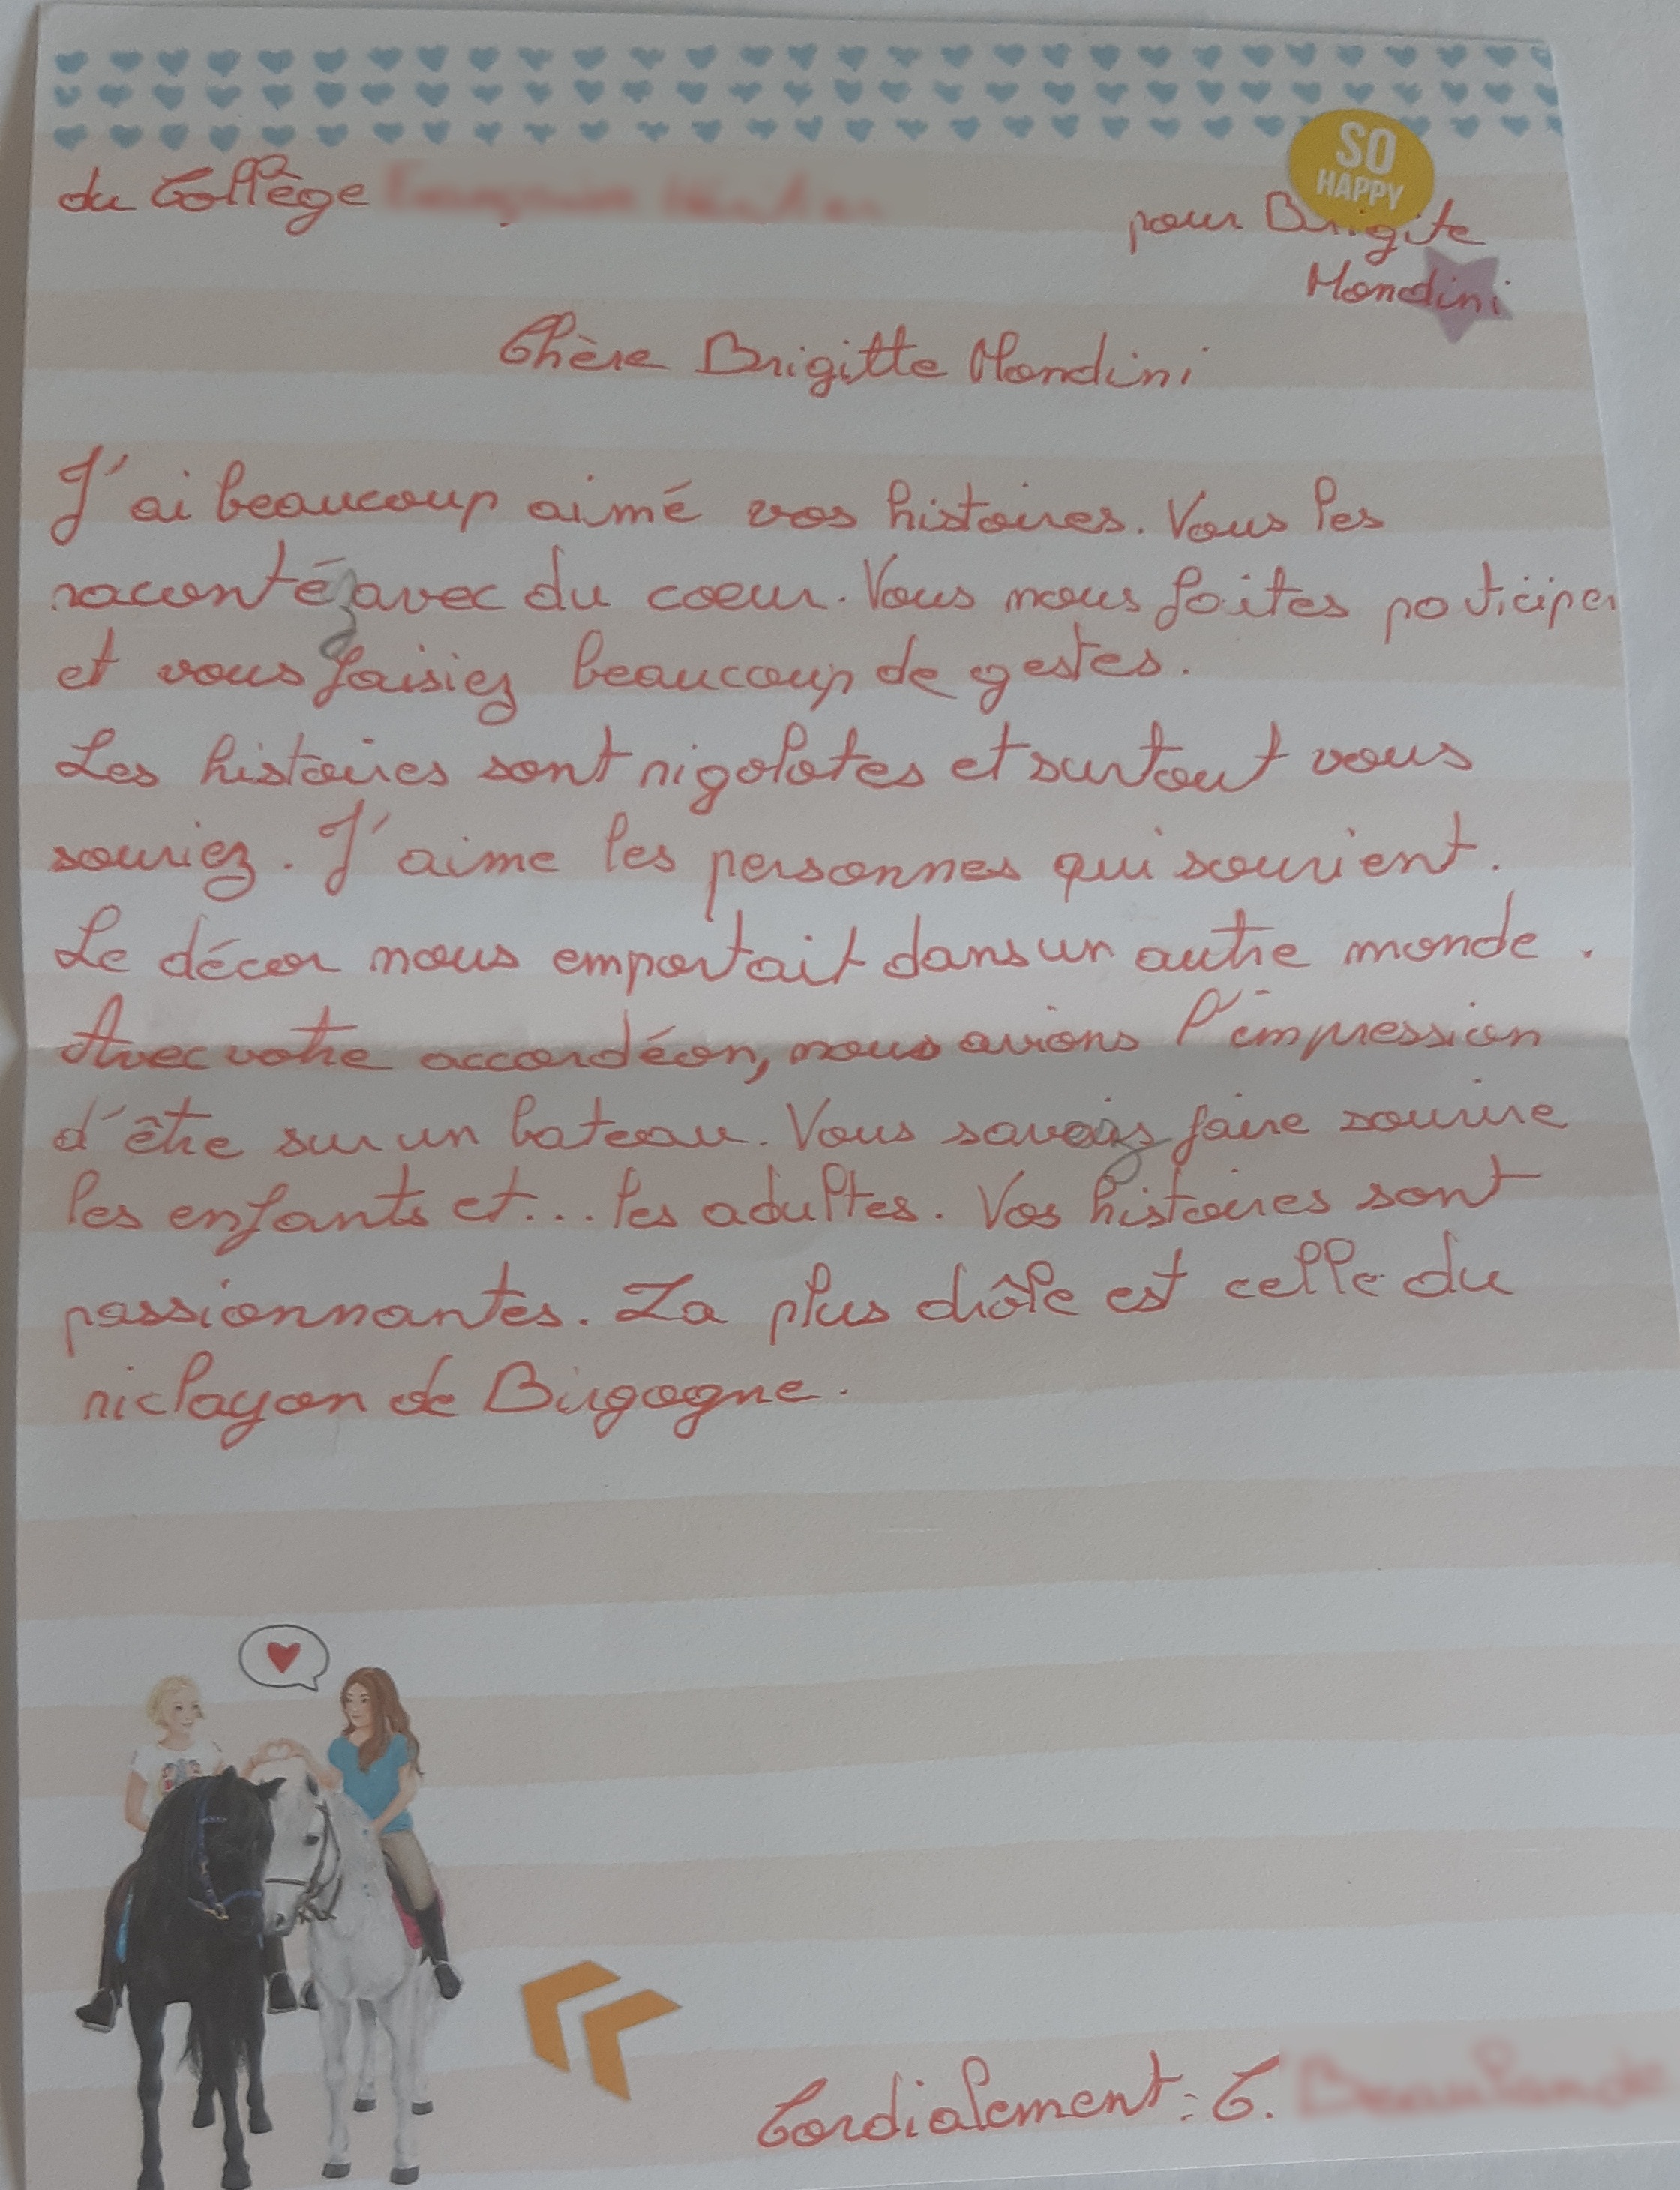 SO
HAPPY
du Collège
pour Brigite
Mondini
Chère Brigitte Mondini
J'ai beaucoup aimé vos histoires. Vous les
racontéz avec du coeur. Vous nous faites participer
et vous faisiez beaucoup de gestes.
Les histoires sont rigolotes et surtout vous
souriez. J'aime les personnes qui sourient.
Le décor nous emportait dans un autre monde.
Avec votre accordéon, nous avions l'impression
d'être sur un bateau. Vous savez faire sourire
les enfants et... les adultes. Vos histoires sont
passionnantes. La plus drôle est celle du
niclayon de Birgogne.
Cordialement : C.